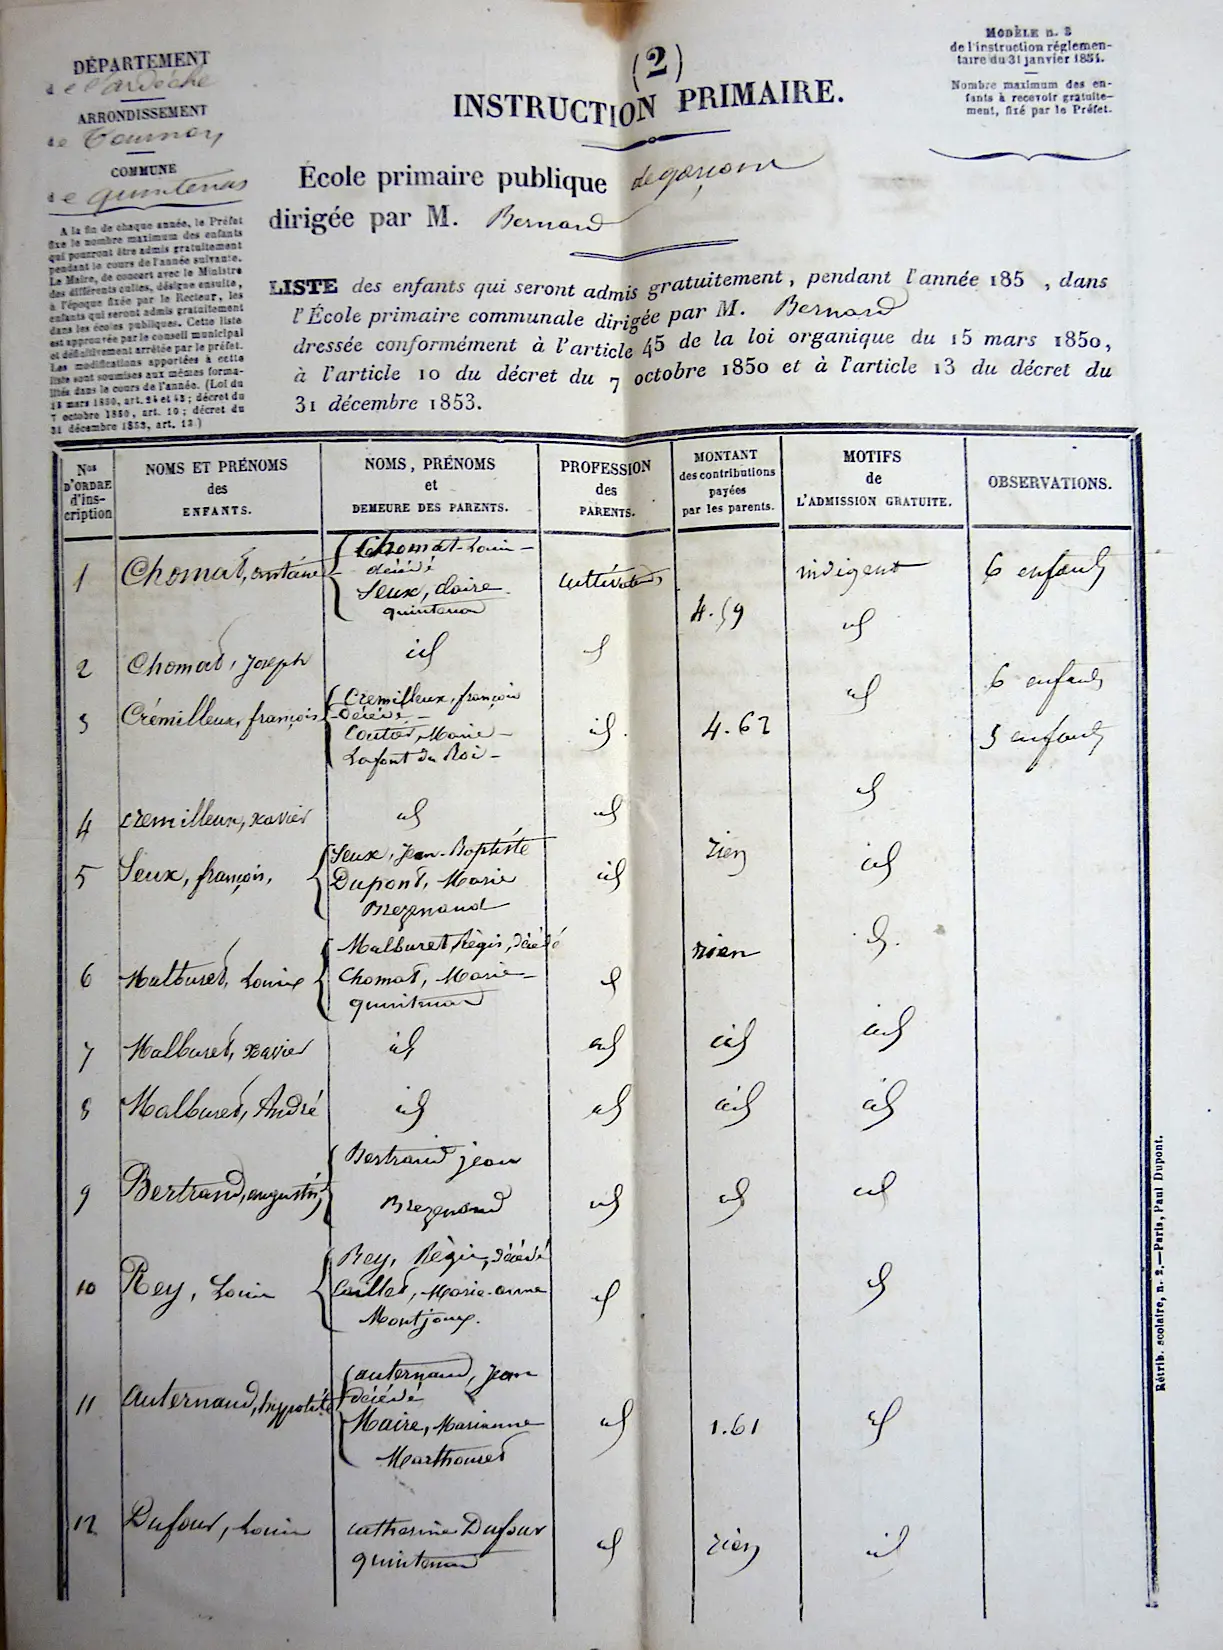 DÉPARTEMENT
de l'ardèche
ARRONDISSEMENT
de Tournon
COMMUNE
de quintenas
A la fin de chaque année, le Préfet
fixe le nombre maximum des enfants
qui pourront être admis gratuitement
pendant le cours de l'année suivante.
Le Maire, de concert avec le Ministre
des différents cultes, désigne ensuite,
à l'époque fixée par le Recteur, les
enfants qui seront admis gratuitement
dans les écoles publiques. Cette liste
est approuvée par le conseil municipal
et définitivement arrêtée par le préfet.
Les modifications apportées à cette
liste sont soumises aux mêmes forma-
lités dans le cours de l'année. (Loi du
15 mars 1850, art. 24 et 45; décret du
7 octobre 1850, art. 10; décret du
31 décembre 1853, art. 13.)
(2)
INSTRUCTION PRIMAIRE.
MODÈLE n. 2
de l'instruction réglemen-
taire du 31 janvier 1854.
Nombre maximum des en-
fants à recevoir gratuite-
ment, fixé par le Préfet.
École primaire publique de garçons
dirigée par M. Bernard
LISTE des enfants qui seront admis gratuitement, pendant l'année 185 , dans
l'École primaire communale dirigée par M. Bernard
dressée conformément à l'article 45 de la loi organique du 15 mars 1850,
à l'article 10 du décret du 7 octobre 1850 et à l'article 13 du décret du
31 décembre 1853.
Nos D'ORDRE d'ins-cription
NOMS ET PRÉNOMS des ENFANTS.
NOMS, PRÉNOMS et DEMEURE DES PARENTS.
PROFESSION des PARENTS.
MONTANT des contributions payées par les parents.
MOTIFS de L'ADMISSION GRATUITE.
OBSERVATIONS.
1 Chomat, antoine
Chomat Louis
décédé
Seux, claire
quintenas
cultivateurs
4.59
indigent
6 enfants
2 Chomat, Joseph id id id 6 enfants
3 Crémilleux, françois
Cremilleux, françois
décédé
Coutas, Marie
Lafont du Roi
id. 4.62 id 5 enfants
4 cremilleux, xavier id id id
5 Seux, françois,
Seux, Jean-Baptiste
Dupont, Marie
Brezenaud
id rien id
6 Malburet, Louis
Malburet Régis, décédé
Chomat, Marie
quintenas
id rien id.
7 Malburet, xavier id id id id
8 Malburet, André id id id id
9 Bertrand, augustin
Bertrand jean
Brezenaud
id id id
10 Rey, Louis
Rey, Régis, décédé
Caillet, Marie-anne
Montjoux.
id id
11 auternaud, hyppolite
auternaud, Jean
décédé
Maire, Marianne
Marthouret
id 1.61 id
12 Dufour, Louis
catherine Dufour
quintenas
id rien id
Rétrib. scolaire, n. 2.—Paris, Paul Dupont.